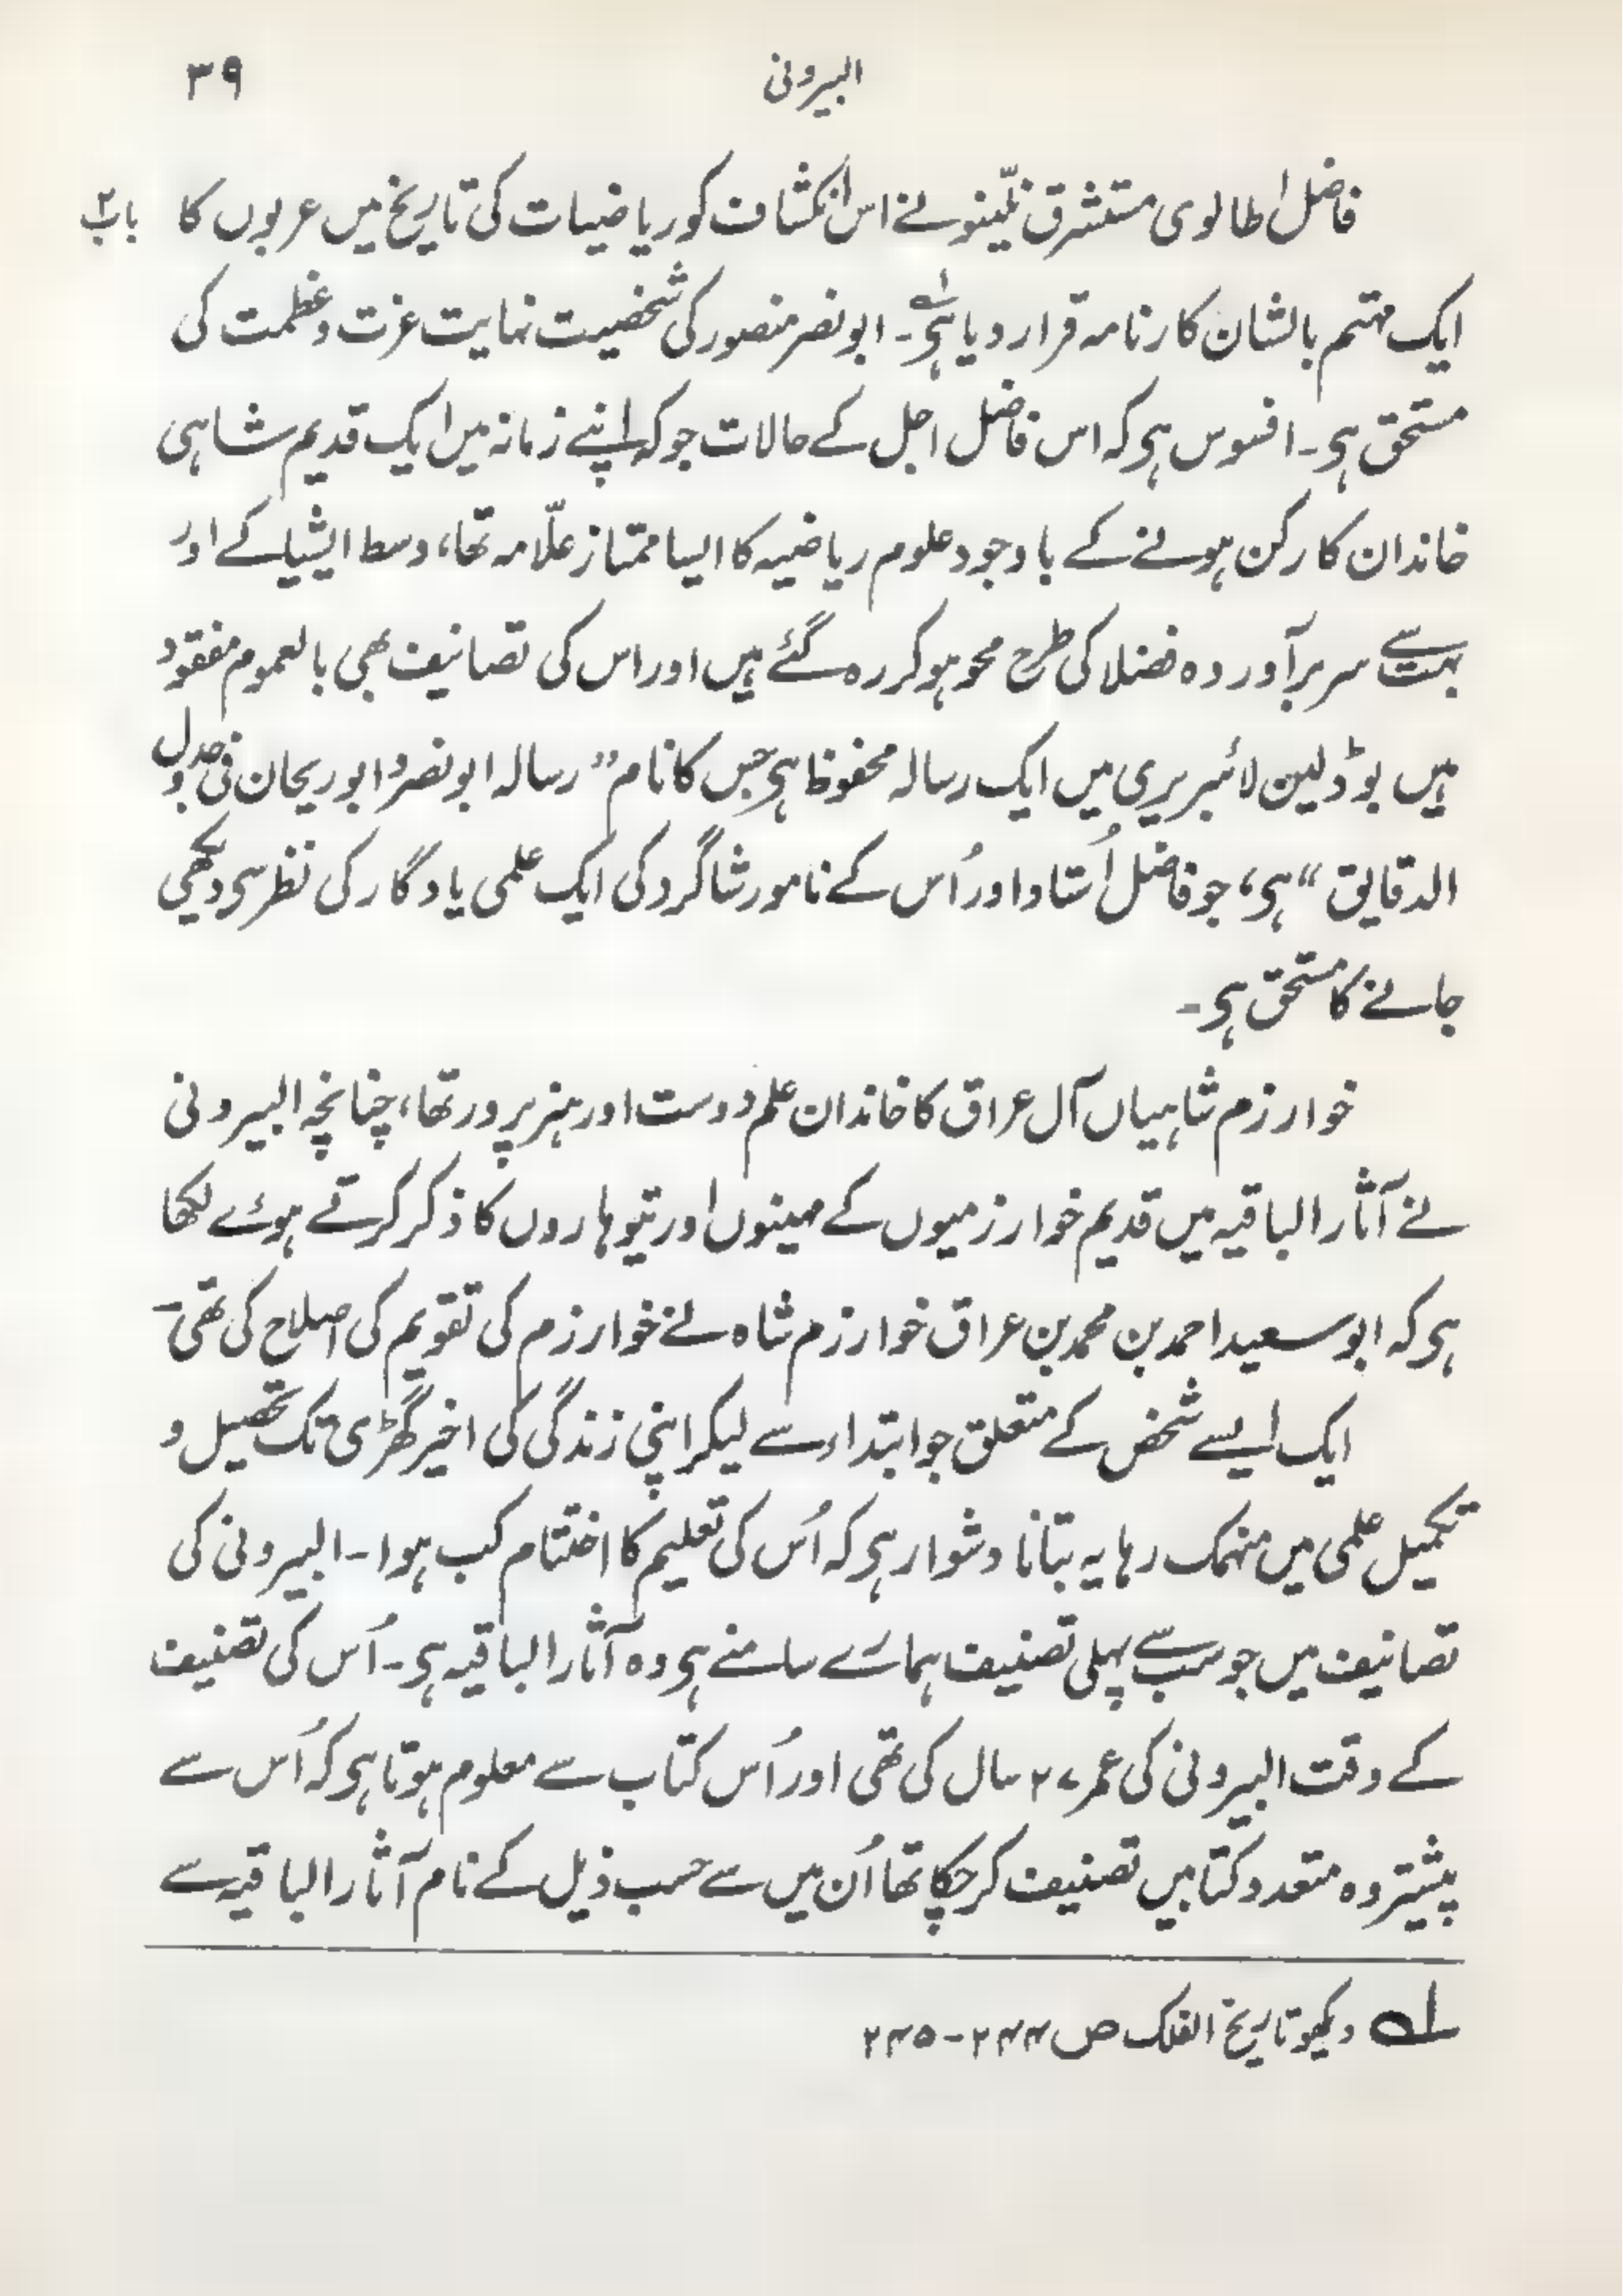 البیرونی ۳۹
فاضل اطالوی مستشرق نلّینو نے اس انکشاف کو ریاضیات کی تاریخ میں عربوں کا باب۲
ایک مہتم بالشان کارنامہ قرار دیا ہی۔ لہ ابونصر منصور کی شخصیت نہایت عزت و عظمت کی
مستحق ہی۔ افسوس ہی کہ اس فاضل اجل کے حالات جو کہ اپنے زمانہ میں ایک قدیم شاہی
خاندان کا رکن ہونے کے باوجود علوم ریاضیہ کا ایسا ممتاز علّامہ تھا، وسط ایشیا کے اور
بہت سے سربرآوردہ فضلا کی طرح محو ہو کر رہ گئے ہیں اور اس کی تصانیف بھی بالعموم مفقود
ہیں بوڈلین لائبریری میں ایک رسالہ محفوظ ہی جس کا نام ”رسالہ ابونصر و ابوریحان فی جدول
الدقایق“ ہی، جو فاضل اُستاد اور اُس کے نامور شاگرد کی ایک علمی یادگار کی نظر سی دیکھی
جانے کا مستحق ہی۔
خوارزم شاہیاں آل عراق کا خاندان علم دوست اور ہنر پرور تھا، چنانچہ البیرونی
نے آثار الباقیہ میں قدیم خوارزمیوں کے مہینوں اور تیوہاروں کا ذکر کرتے ہوئے لکھا
ہی کہ ابوسعید احمد بن محمد بن عراق خوارزم شاہ نے خوارزم کی تقویم کی اصلاح کی تھی۔
ایک ایسے شخص کے متعلق جو ابتداء سے لیکر اپنی زندگی کی اخیر گھڑی تک تحصیل و
تکمیل علمی میں منہمک رہا یہ بتانا دشوار ہی کہ اُس کی تعلیم کا اختتام کب ہوا۔ البیرونی کی
تصانیف میں جو سب سے پہلی تصنیف ہمارے سامنے ہی وہ آثار الباقیہ ہی۔ اُس کی تصنیف
کے وقت البیرونی کی عمر ۲۷ سال کی تھی اور اُس کتاب سے معلوم ہوتا ہی کہ اُس سے
پیشتر وہ متعدد کتابیں تصنیف کر چکا تھا اُن میں سے حسب ذیل کے نام آثار الباقیہ سے
لہ دیکھو تاریخ الفلک ص ۲۴۴-۲۴۵